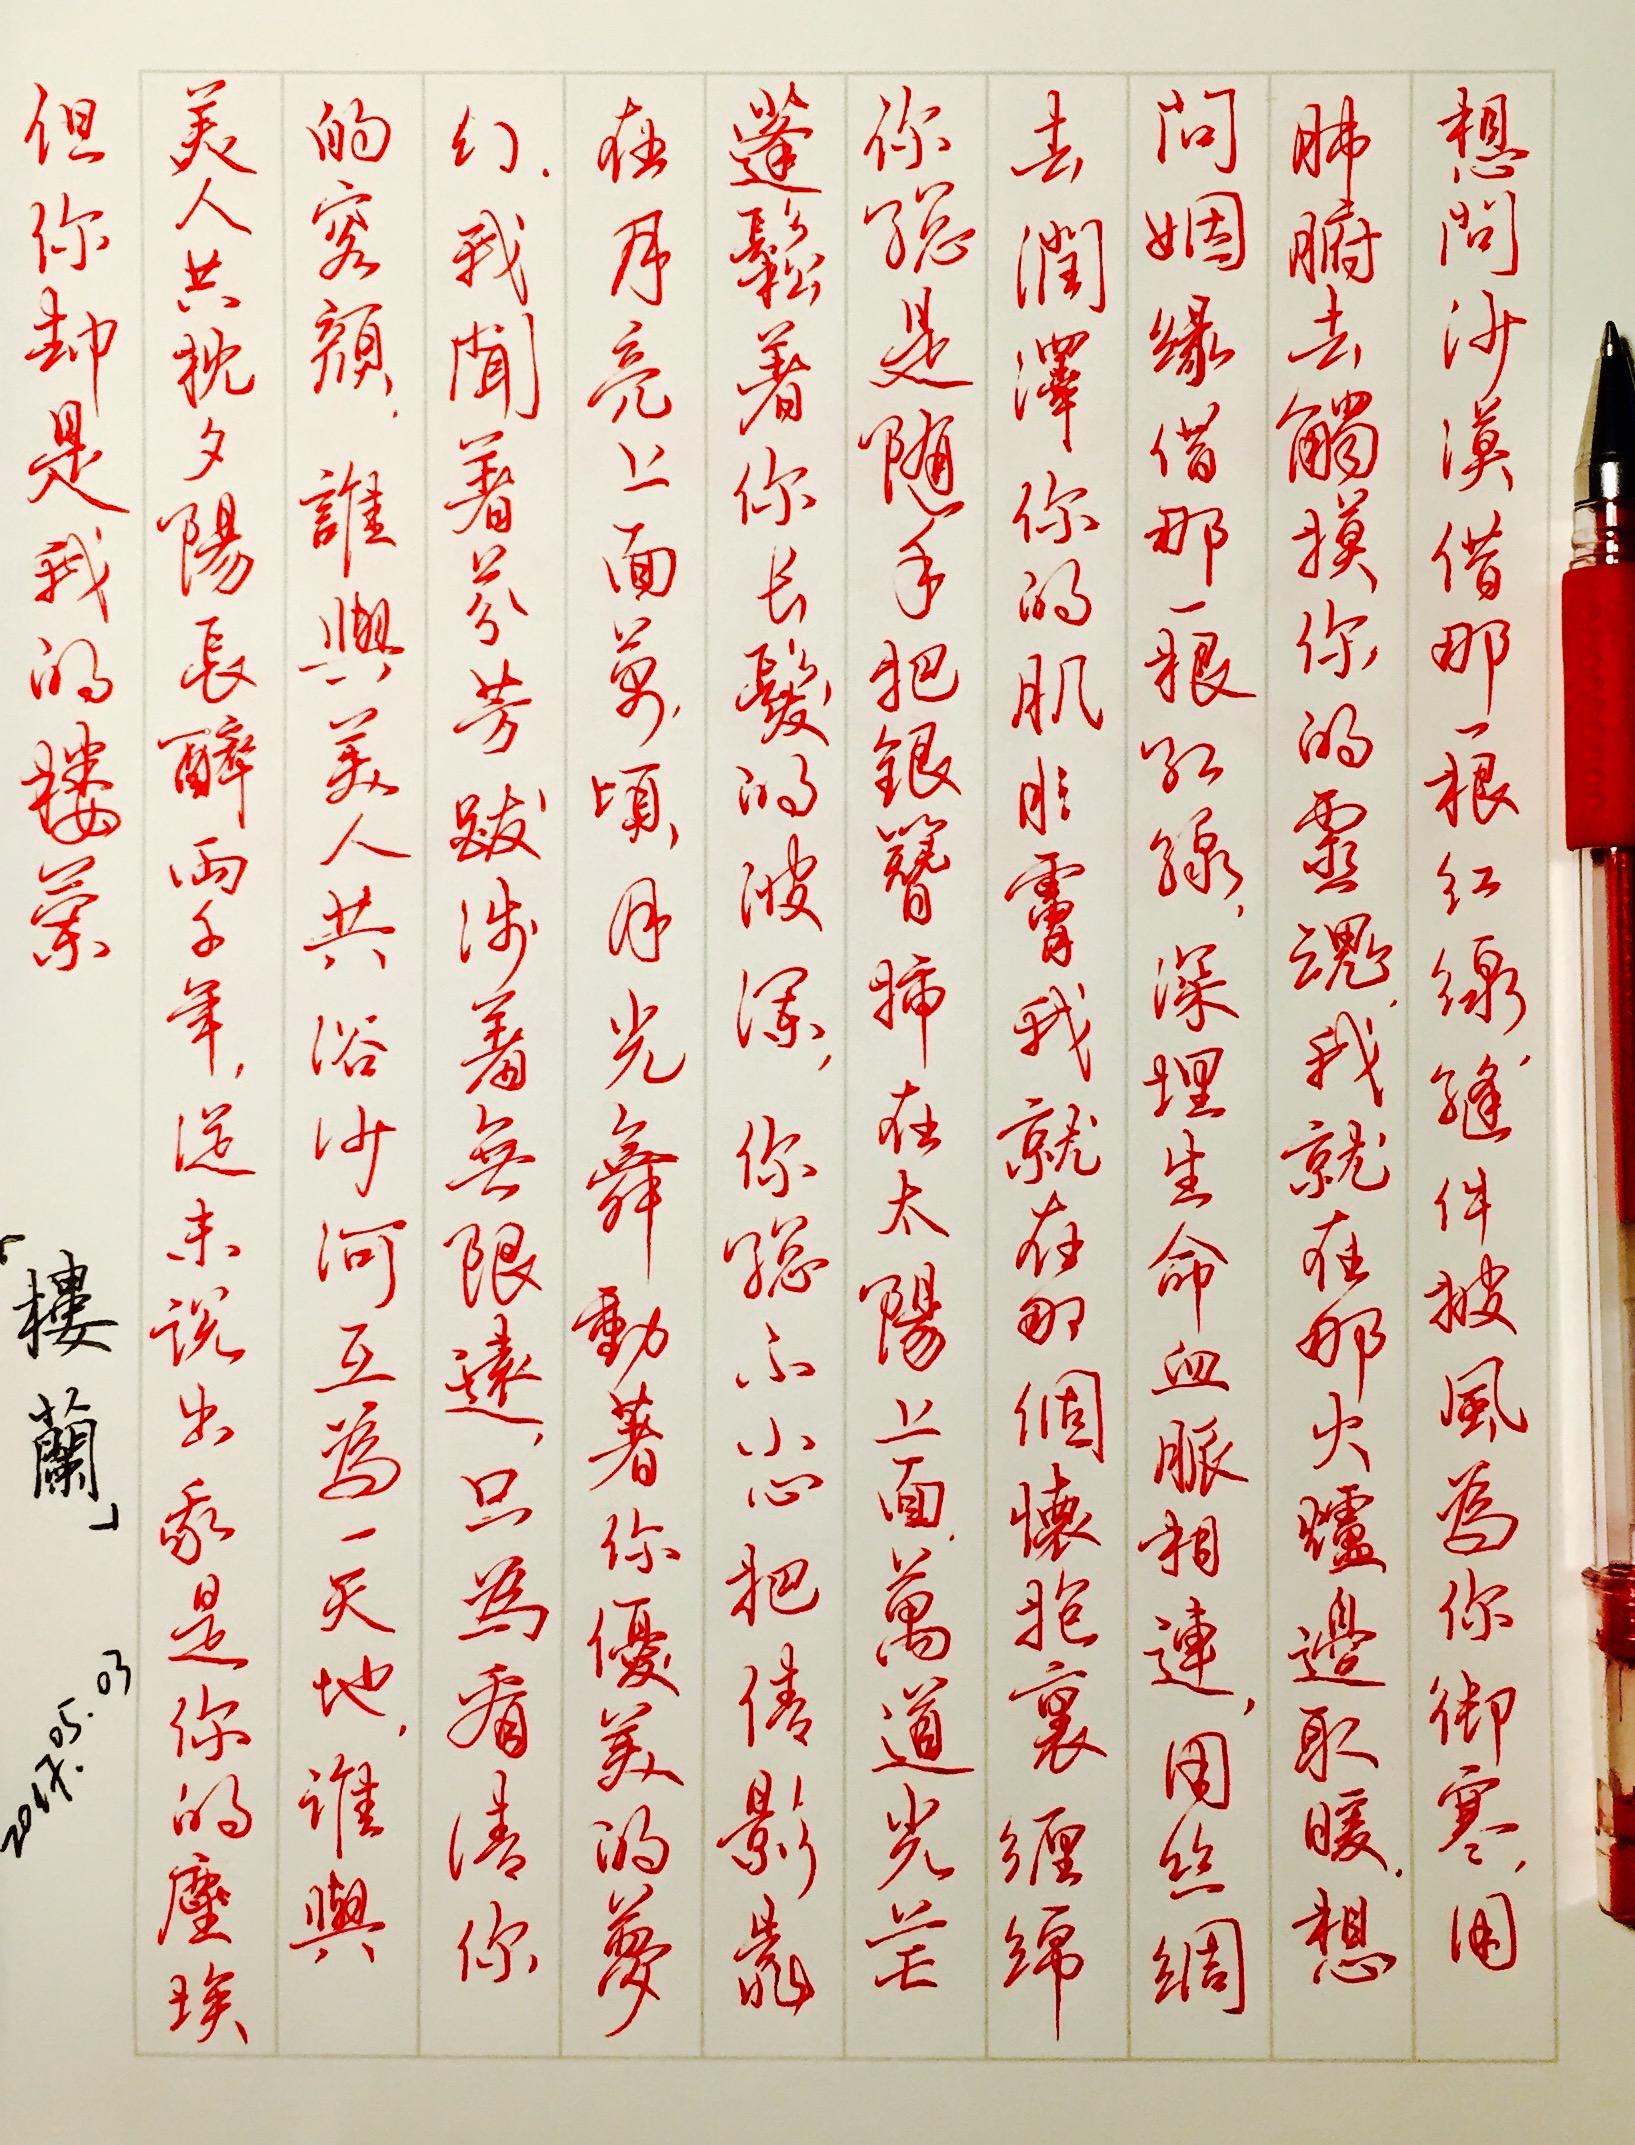 想問沙漠借那一根红線縫件披風為你御寒，用
肺腑去觸摸你的靈魂，我就在那火爐邊取暖，想
問姻緣借那一根红線，深埋生命血脈相連，用丝綢
去潤澤你的肌肤，我就在那個懷抱裏缠綿
你總是隨手把銀簪插在太陽上面，萬道光芒
蓬鬆著你长髮的波浪，你總不小心把倩影靠
在月亮上面，萬頃月光舞動著你優美的夢
幻，我聞著芬芳跋涉著無限遠，只為看清你
的容顏，誰與美人共浴沙河互為一天地，誰與
美人共枕夕陽長醉两千年，從未說出我是你的塵埃
但你卻是我的楼蘭
「樓蘭」
2017.05.03